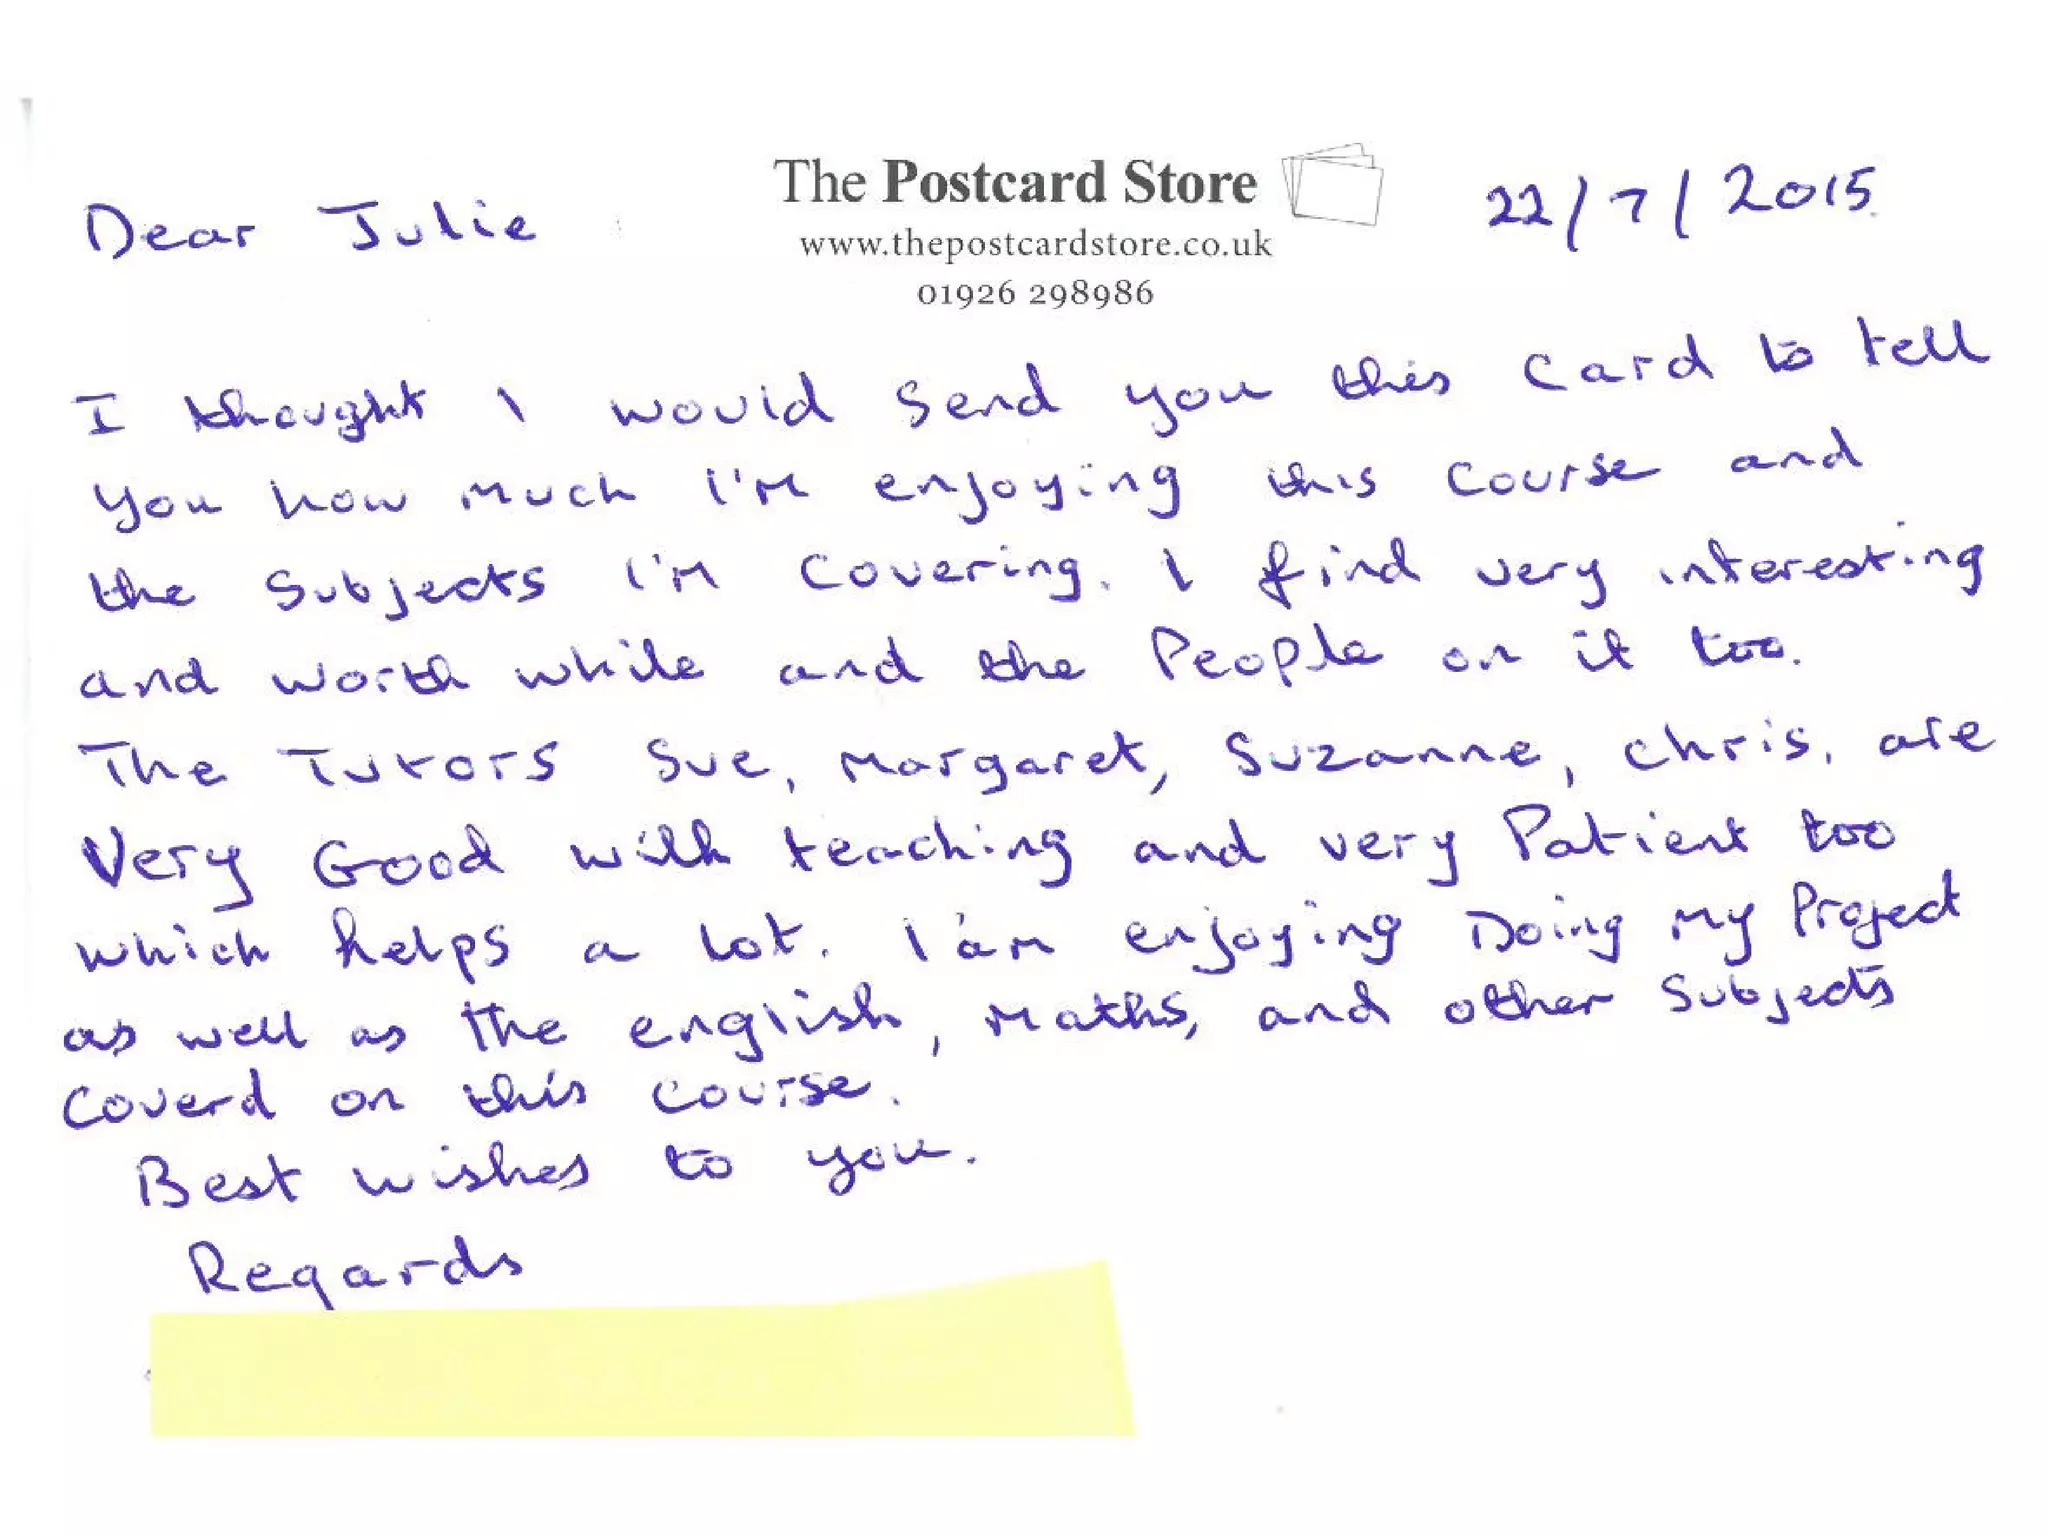 The Postcard Store
www.thepostcardstore.co.uk
01926 298986
Dear Julie
22/7/2015
I thought I would send you this Card to tell
you how much I'm enjoying this Course and
the Subjects I'm Covering. I find very interesting
and worth while and the People on it too.
The Tutors Sue, Margaret, Suzanne, Chris, are
Very Good with teaching and very Patient too
which helps a lot. I'am enjoying Doing my Project
as well as the english, Maths, and other Subjects
Coverd on this Course.
Best wishes to you.
Regards